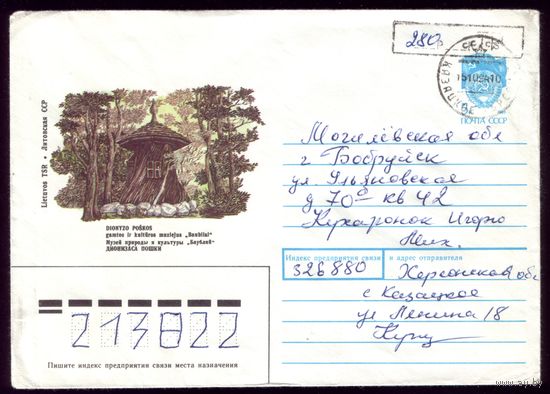 280 р
ПОЧТА СССР
Lietuvos TSR • Литовская ССР
DIONYZO POŠKOS
gamtos ir kultūros muziejus „Baubliai“
Музей природы и культуры „Баубляй“
ДИОНИЗАСА ПОШКИ
Могилёвская обл
г Бобруйск
ул Ульяновская
д 70а кв 42
Кухаронок Игорю
Мих.
Индекс предприятия связи и адрес отправителя
326880
Херсонская об
с Казацкое
ул Ленина 18
213822
Пишите индекс предприятия связи места назначения
www.aj.by